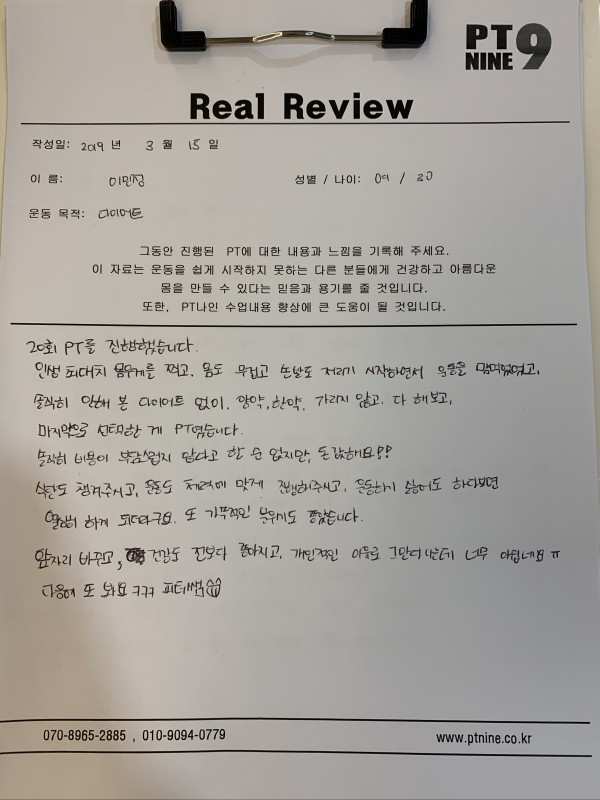 PT NINE 9
Real Review
작성일: 2019 년 3 월 15 일
이 름: 이민정 성별 / 나이: 여 / 20
운동 목적: 다이어트
그동안 진행된 PT에 대한 내용과 느낌을 기록해 주세요.
이 자료는 운동을 쉽게 시작하지 못하는 다른 분들에게 건강하고 아름다운
몸을 만들 수 있다는 믿음과 용기를 줄 것입니다.
또한, PT나인 수업내용 향상에 큰 도움이 될 것입니다.
20회 PT를 진행했습니다.
인생 최대치 몸무게를 찍고, 몸도 무겁고 손발도 저리기 시작하면서 운동을 맘먹었었고,
솔직히 안해 본 다이어트 없이. 양약, 한약, 가리지 않고. 다 해보고,
마지막으로 선택한 게 PT였습니다.
솔직히 비용이 부담스럽지 않다고 할 순 없지만, 돈값해요!!
식단도 챙겨주시고, 운동도 체력에 맞게 진행해주시고, 운동하기 싫어도 하다보면
열심히 하게 되더라구요. 또 가족적인 분위기도 좋았습니다.
앞자리 바꾸고, 건강도 전보다 좋아지고, 개인적인 이유로 그만두는데 너무 아쉽네요 ㅠ
다음에 또 봐요 ㅋㅋㅋ 피티쌤
070-8965-2885 , 010-9094-0779 www.ptnine.co.kr